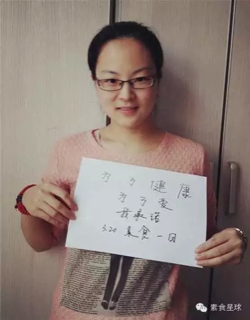 为了健康
为了爱
我承诺
3.20 素食一日
素食星球